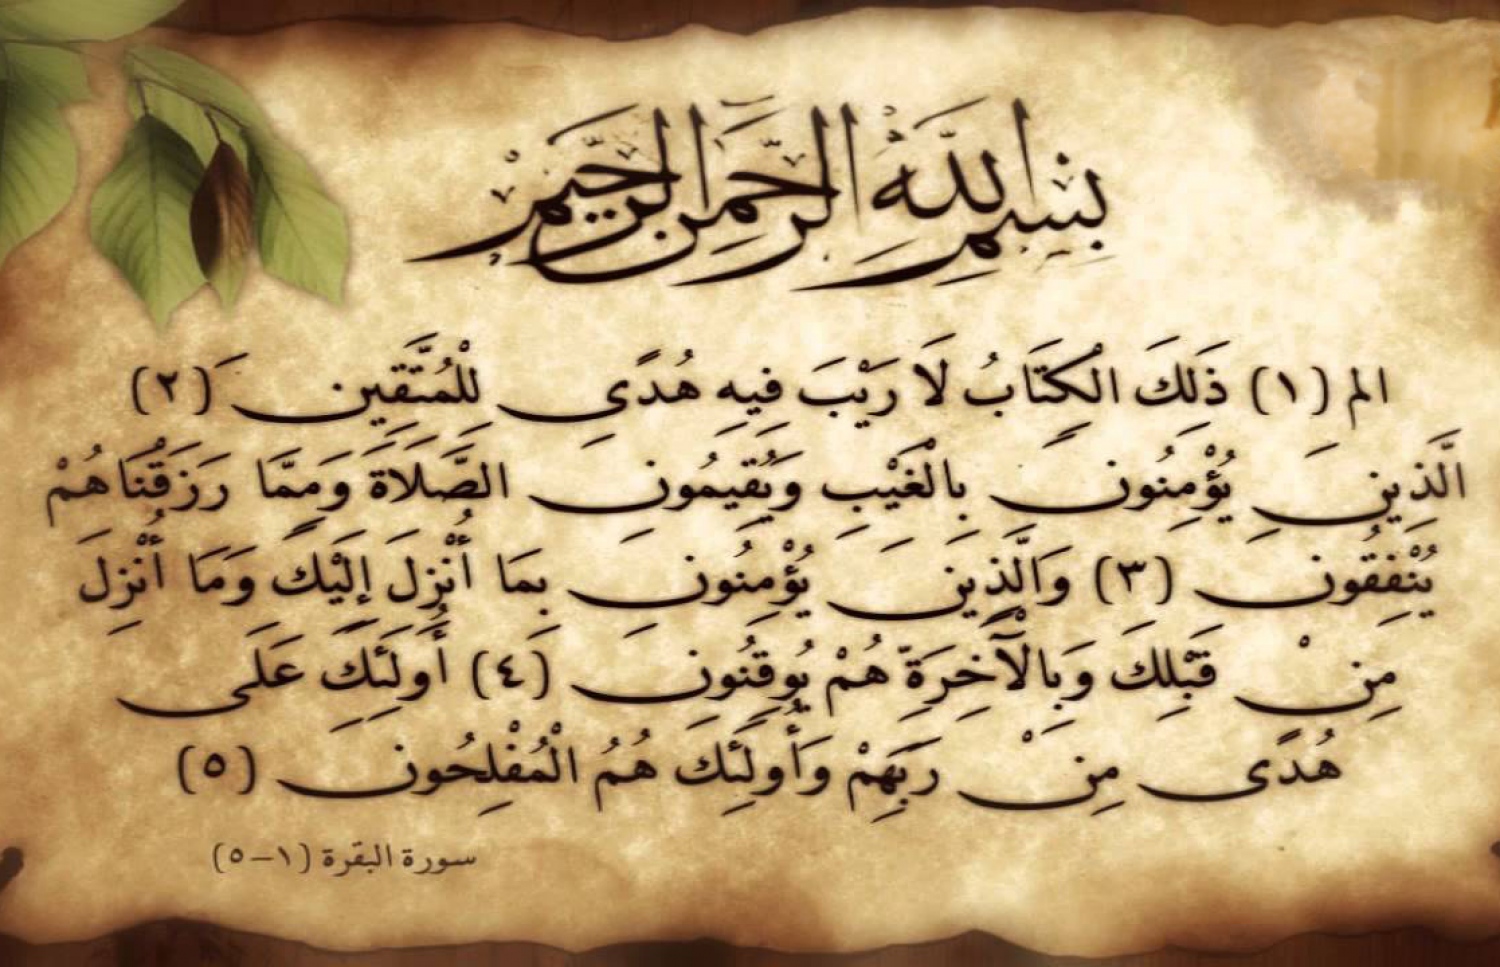 بِسْمِ اللَّهِ الرَّحْمَنِ الرَّحِيمِ
الم (١) ذَلِكَ الْكِتَابُ لَا رَيْبَ فِيهِ هُدًى لِلْمُتَّقِينَ (٢)
الَّذِينَ يُؤْمِنُونَ بِالْغَيْبِ وَيُقِيمُونَ الصَّلَاةَ وَمِمَّا رَزَقْنَاهُمْ
يُنْفِقُونَ (٣) وَالَّذِينَ يُؤْمِنُونَ بِمَا أُنْزِلَ إِلَيْكَ وَمَا أُنْزِلَ
مِنْ قَبْلِكَ وَبِالْآخِرَةِ هُمْ يُوقِنُونَ (٤) أُولَئِكَ عَلَى
هُدًى مِنْ رَبِّهِمْ وَأُولَئِكَ هُمُ الْمُفْلِحُونَ (٥)
سورة البقرة (١-٥)